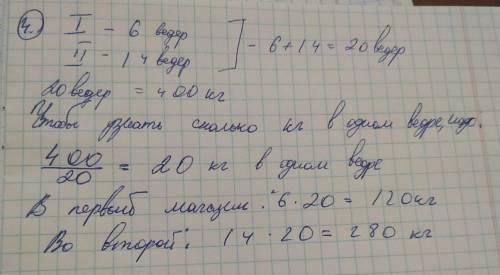 4. I - 6 ведер
II - 14 ведер ] - 6+14=20 ведер
20 ведер = 400 кг
Чтобы узнать сколько кг в одном ведре, надо.
400/20 = 20 кг в одном ведре
В первый магазин: 6·20 = 120 кг
Во второй: 14·20 = 280 кг